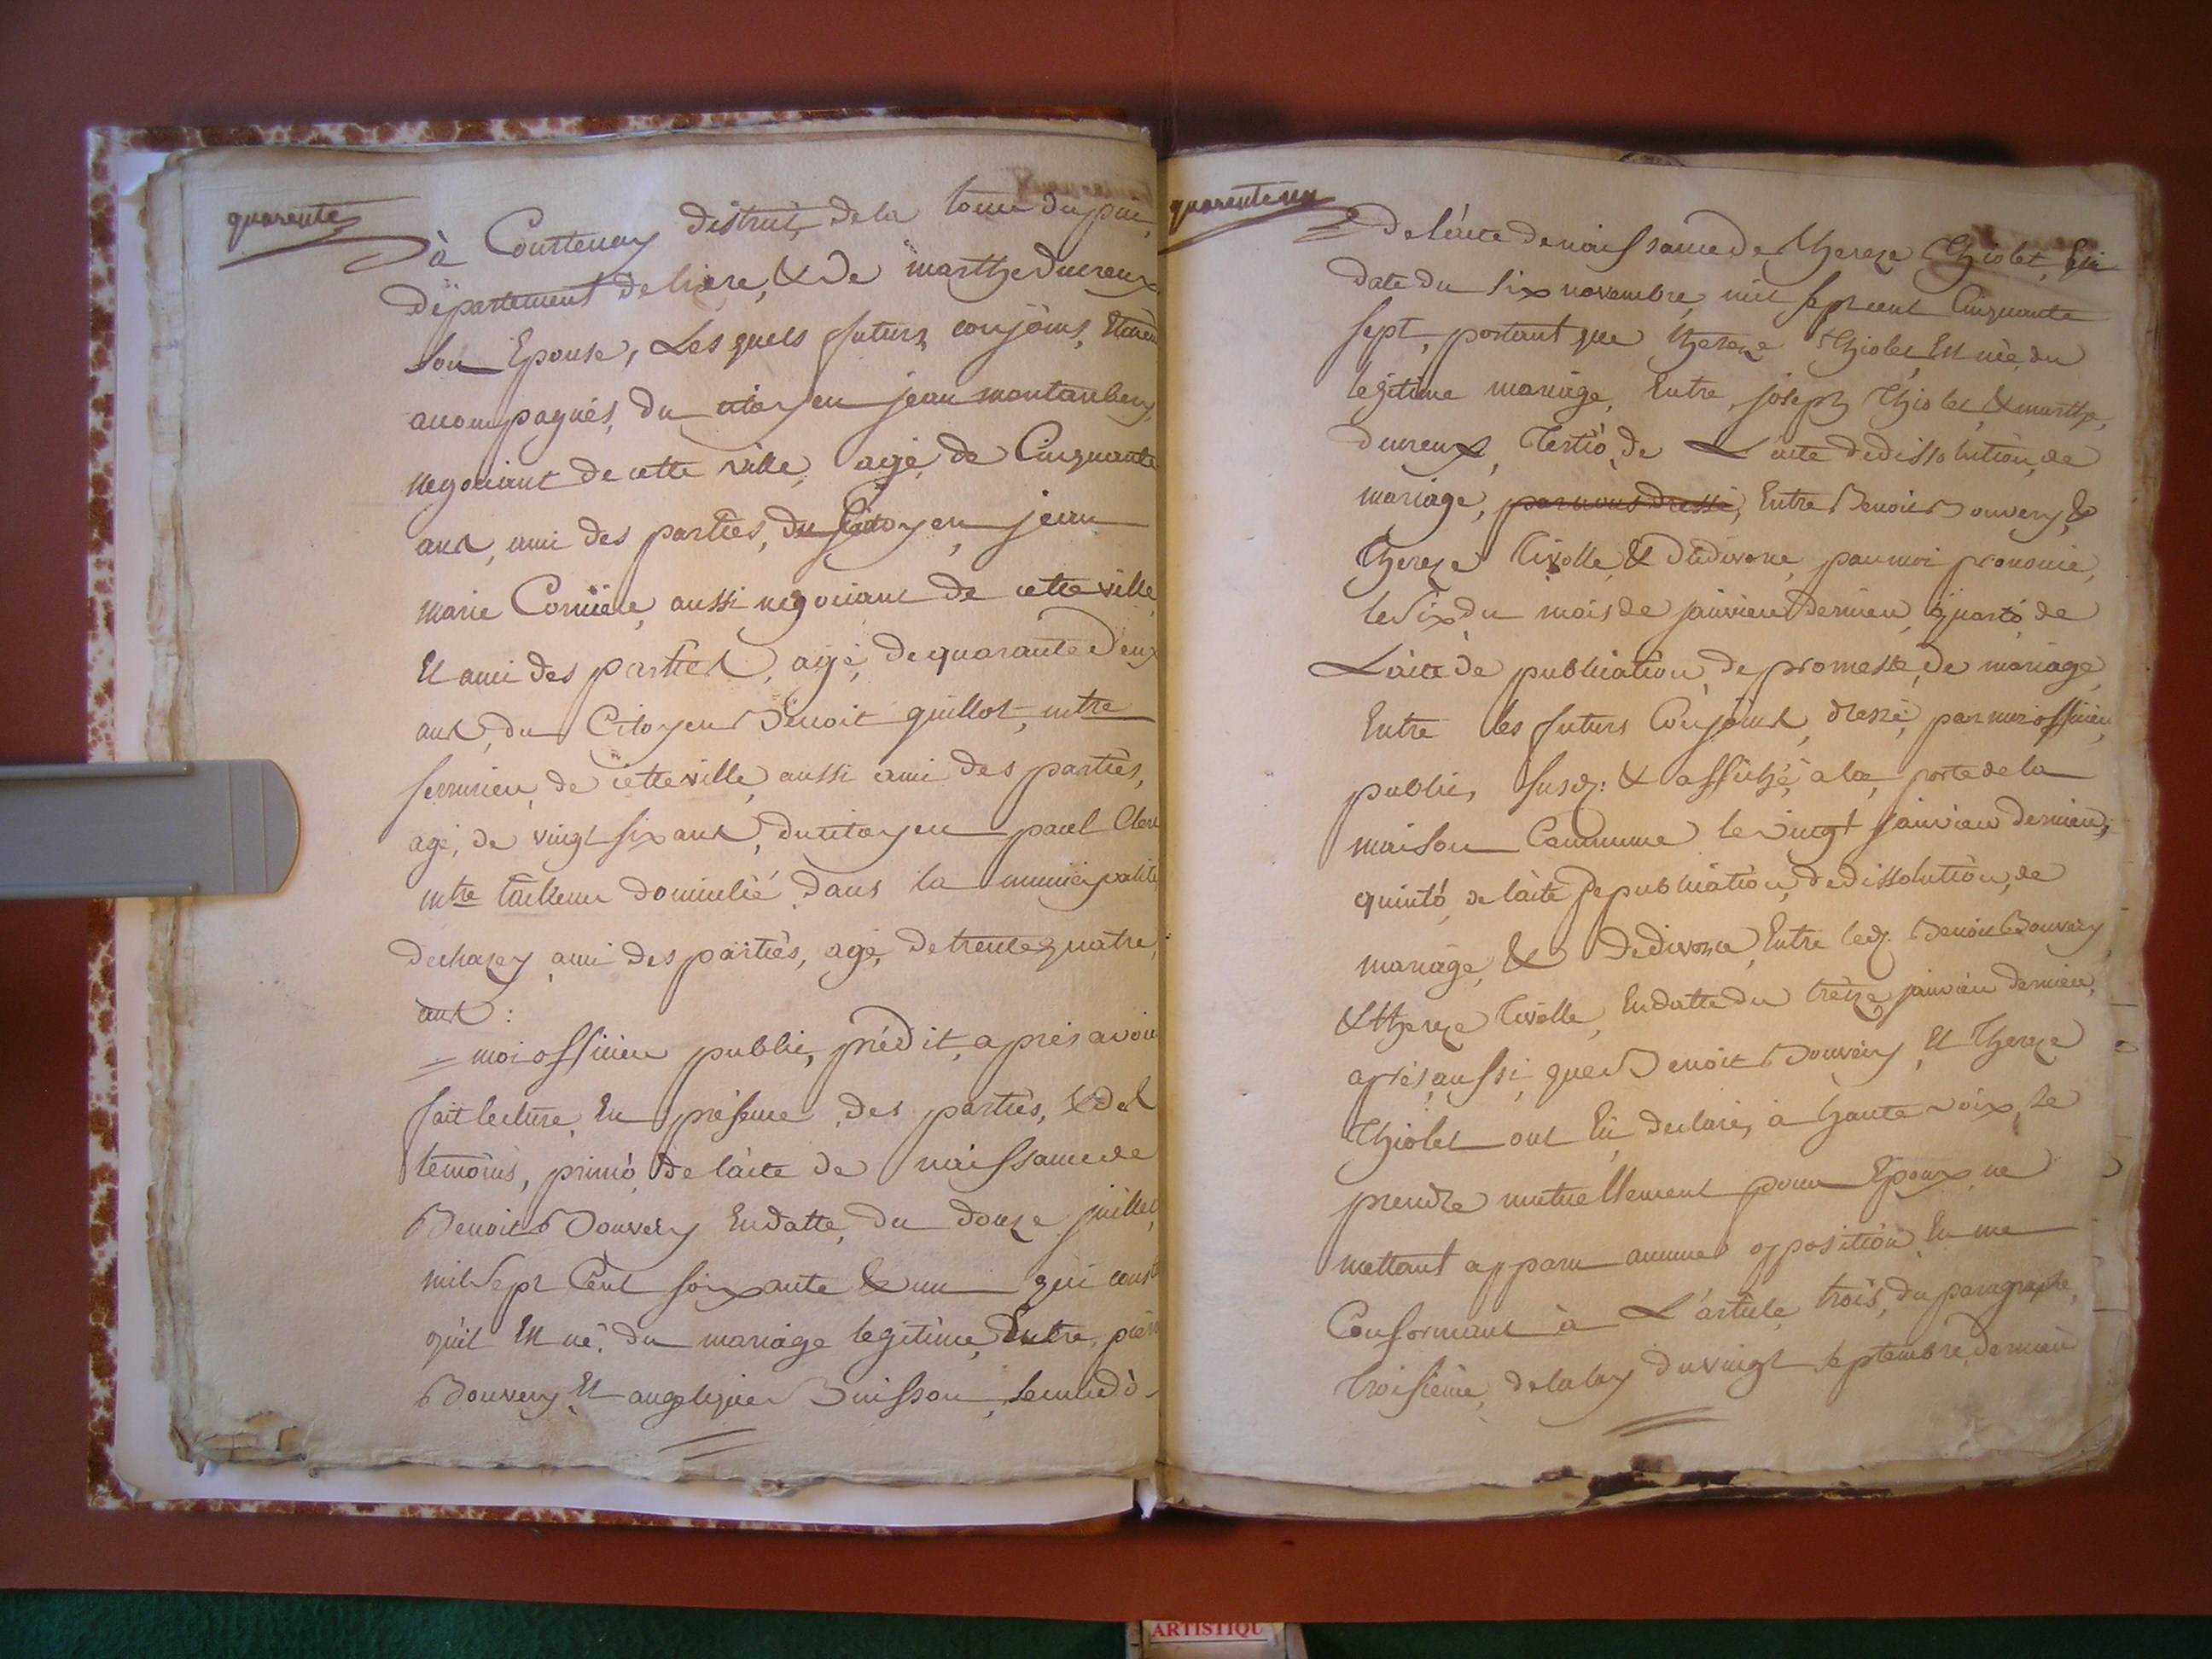 quarente
à Courtenay district de la tour du pin,
département de lisere, & de marthe ducreux
son Epouse, Lesquels futurs conjoins, Etaient
accompagnés, du citoyen jean montanbery,
negociant de cette ville, agé, de Cinquante
ans, ami des parties, du Citoyen, jean
marie Corniere, aussi negociant de cette ville,
Et ami des parties, agé, de quarante Deux
ans, du Citoyen Benoit guillot, mtre
serrurier, de cette ville, aussi ami des parties,
agé, de vingt six ans, du citoyen paul Clerc
mtre tailleur domicilié dans la municipalité
de chazey, ami des parties, agé, de trente quatre,
ans :
= moi officier public, prédit, apres avoir
fait lecture, En présence, des parties, & des
temoins, primò de l'acte de naissance de
Benoit Bouvery En datte, du douze juillet
mil sept Cent soixante & un qui const
qu'il Est né, du mariage legitime, Entre, pierre
Bouvery, Et angelique Buisson, secundò
quarente un
De l'acte de naissance de, thereze Thiolet, En
date du six novembre, mil sept cent Cinquante
sept, portant que thereze Thiolet, Est née, du
legitime mariage, Entre, joseph Thiolet, & marthe,
ducreux, Tertiò, de L'acte de dissolution, de
mariage, par nous dressé, Entre Benoit Bouvery, &
thereze Tivolle, & de divorce, par moi prononcé,
le six, du mois de janvier dernier, quartò, de
L'acte de publication, de promesse, de mariage,
Entre les futurs Conjoins, dressé, par moi officier,
public, susd: & affiché, a la, porte de la
maison Commune le vingt janvier dernier;
quintò, de l'acte de publication, de dissolution, de
mariage, & de divorce, Entre led: Benoit Bouvery
& thereze Tivolle, En datte du treize, janvier dernier,
aprés, aussi, que Benoit Bouvery, Et Thereze
Thiolet ont Eù declaré, à haute voix, se
prendre mutuellement pour Epoux, ne
mettant apparu aucune opposition, En me
Conformant à L'article, trois, du paragraphe,
troisieme, de la loy du vingt septembre dernier
ARTISTIQU